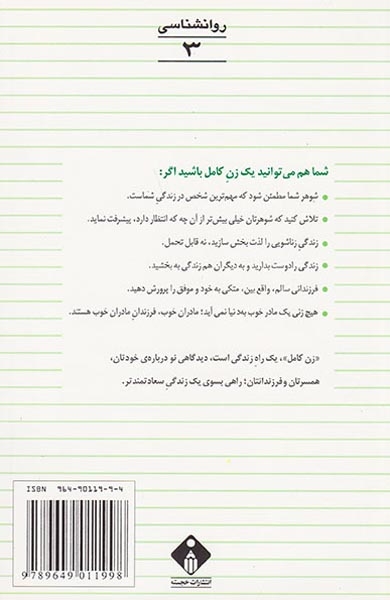 روانشناسی
۳
شما هم می‌توانید یک زنِ کامل باشید اگر:
شوهر شما مطمئن شود که مهم‌ترین شخص در زندگیِ شماست.
تلاش کنید که شوهرتان خیلی بیش‌تر از آن چه که انتظار دارد، پیشرفت نماید.
زندگیِ زناشویی را لذت بخش سازید، نه قابل تحمل.
زندگی را دوست بدارید و به دیگران هم زندگی به بخشید.
فرزندانی سالم، واقع بین، متکی به خود و موفق را پرورش دهید.
هیچ زنی یک مادر خوب به‌دنیا نمی‌آید؛ مادران خوب، فرزندانِ مادران خوب هستند.
«زن کامل»، یک راهِ زندگی است، دیدگاهی نو درباره‌ی خودتان،
همسرتان و فرزندانتان؛ راهی بسوی یک زندگیِ سعادتمندتر.
ISBN 964-90119-9-4
9 789649 011998
انتشارات خجسته